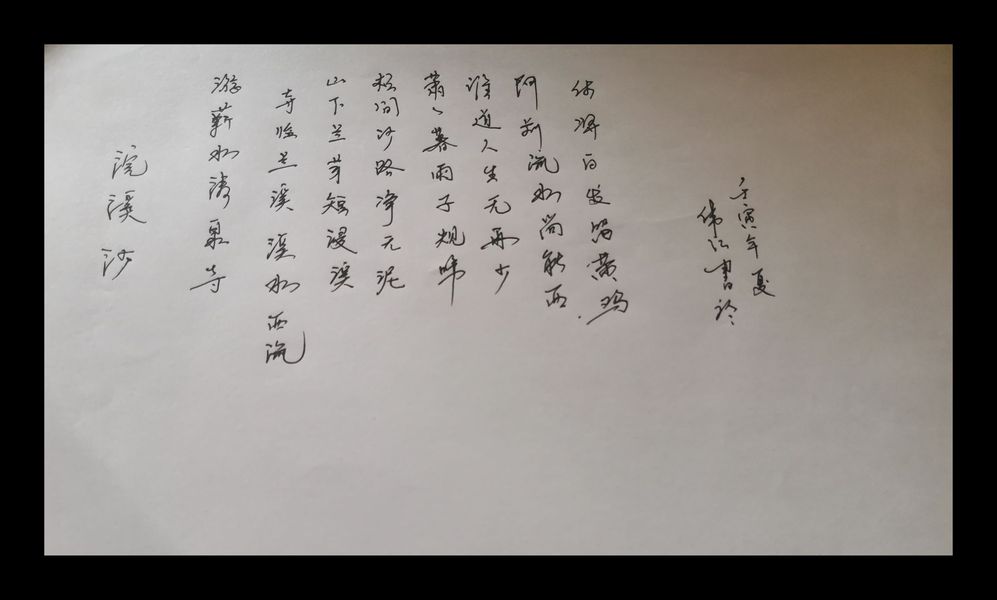 浣溪沙
游蕲水清泉寺
寺临兰溪 溪水西流
山下兰芽短浸溪
松间沙路净无泥
萧々暮雨子规啼
谁道人生无再少
门前流水尚能西
休将白发唱黄鸡
壬寅年夏
伟 书